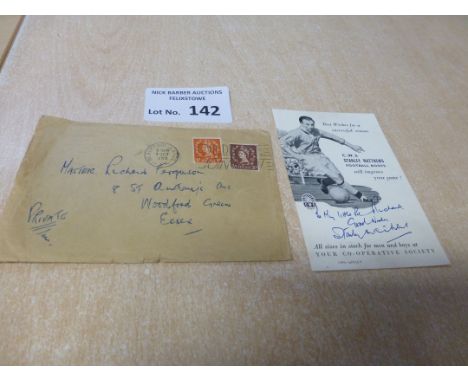 NICK BARBER AUCTIONS
FELIXSTOWE
Lot No. 142
Master Richard Ferguson
8 St Andrew's Ave
Woodford Green
Essex
PRIVATE
Best Wishes for a
successful season
C.W.S
STANLEY MATTHEWS
FOOTBALL BOOTS
will improve
your game!
To My little Pal Richard
Good Luck
Stanley Matthews
All sizes in stock for men and boys at
YOUR CO-OPERATIVE SOCIETY